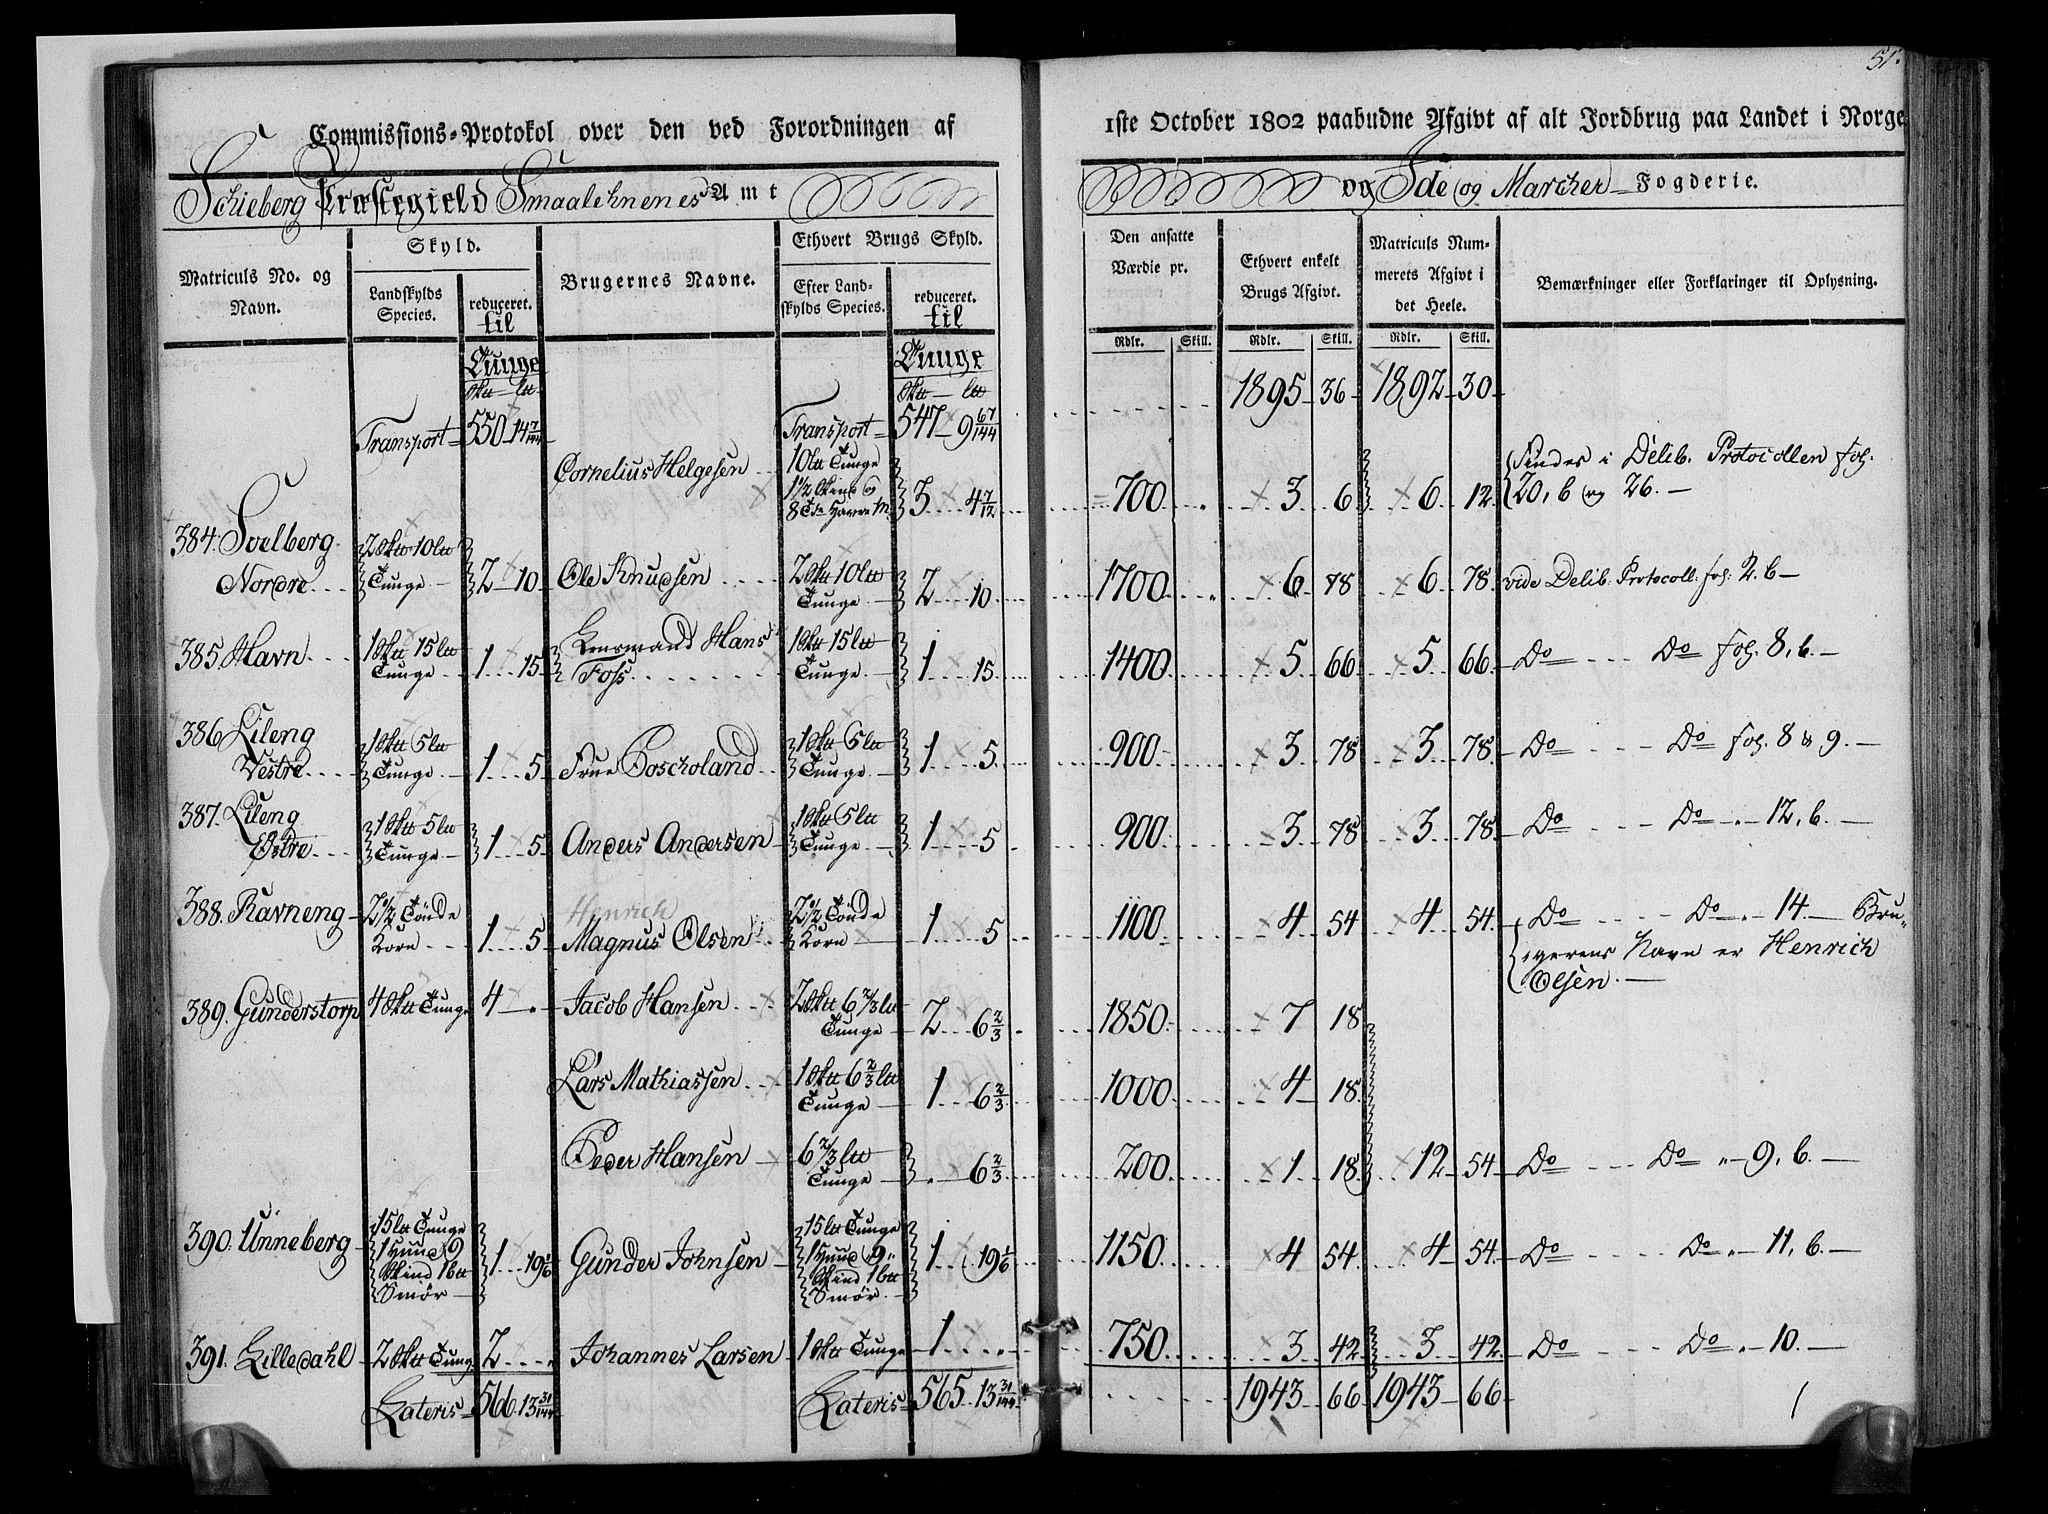 51.
Commissions-Protokol over den ved Forordningen af
1ste October 1802 paabudne Afgivt af alt Jordbrug paa Landet i Norge
Schieberg Præstegield Smaalehnenes Amt
og Ide og Marcher Fogderie.
Matriculs No. og Navn.
Skyld.
Landskylds Species.
reduceret. til Tunge
Brugernes Navne.
Ethvert Brugs Skyld.
Efter Landskylds Species.
reduceret. til Tunge
Den ansatte Værdie pr.
Ethvert enkelt Brugs Afgivt.
Matriculs Nummerets Afgivt i det Heele.
Bemærkninger eller Forklaringer til Oplysning.
Rdlr. Skill. Rdlr. Skill. Rdlr. Skill.
Transport 550 14 7/144 Transport 547 9 67/144 1895 36 1892 30
Cornelius Helgesen 10 ltt Tunge 1 1/2 Skind og 8 Tdr Havre M. 3 4 7/12 700 3 6 6 12 Findes i Delib. Protocollen fol: 20, b og 26.
384. Soelberg Nordre 2 Sktt 10 ltt Tunge 2 10 Ole Knudsen 2 Sktt 10 ltt Tunge 2 10 1700 6 78 6 78 vide Delib: Protocoll: fol: 2. b
385. Havn 1 Sktt 15 ltt Tunge 1 15 Lensmand Hans Foss 1 Sktt 15 ltt Tunge 1 15 1400 5 66 5 66 Do Do fol. 8, b.
386 Lileng Vestre 1 Sktt 5 ltt Tunge 1 5 Frue Boscholand 1 Sktt 5 ltt Tunge 1 5 900 3 78 3 78 Do Do fol. 8 & 9.
387. Lileng Østre 1 Sktt 5 ltt Tunge 1 5 Anders Andersen 1 Sktt 5 ltt Tunge 1 5 900 3 78 3 78 Do Do " 12, b.
388. Ravneng 2 1/2 Tönde Korn 1 5 Hinrich Magnus Olsen 2 1/2 Tönde Korn 1 5 1100 4 54 4 54 Do Do " 14. Brugerens Navn er Henrich Olsen.
389. Gunderstorp 4 Sktt Tunge 4 " Jacob Hansen 2 Sktt 6 2/3 ltt Tunge 2 6 2/3 1850 7 18
Lars Mathiassen 1 Sktt 6 2/3 ltt Tunge 1 6 2/3 1000 4 18
Peder Hansen 6 2/3 ltt Tunge " 6 2/3 200 1 18 12 54 Do Do " 9, b.
390. Unneberg 15 ltt Tunge 1 Huud 9 Skind 1 btt Smör 1 19 1/6 Gunder Johnsen 15 ltt Tunge 1 Huud 9 Skind 1 btt Smör 1 19 1/6 1150 4 54 4 54 Do Do " 11, b.
391. Lilledahl 2 Sktt Tung 2 " Johannes Larsen 1 Sktt Tunge 1 " 750 3 42 3 42 Do Do " 10.
Lateris 566 13 31/144 Lateris 565 13 31/144 1943 66 1943 66